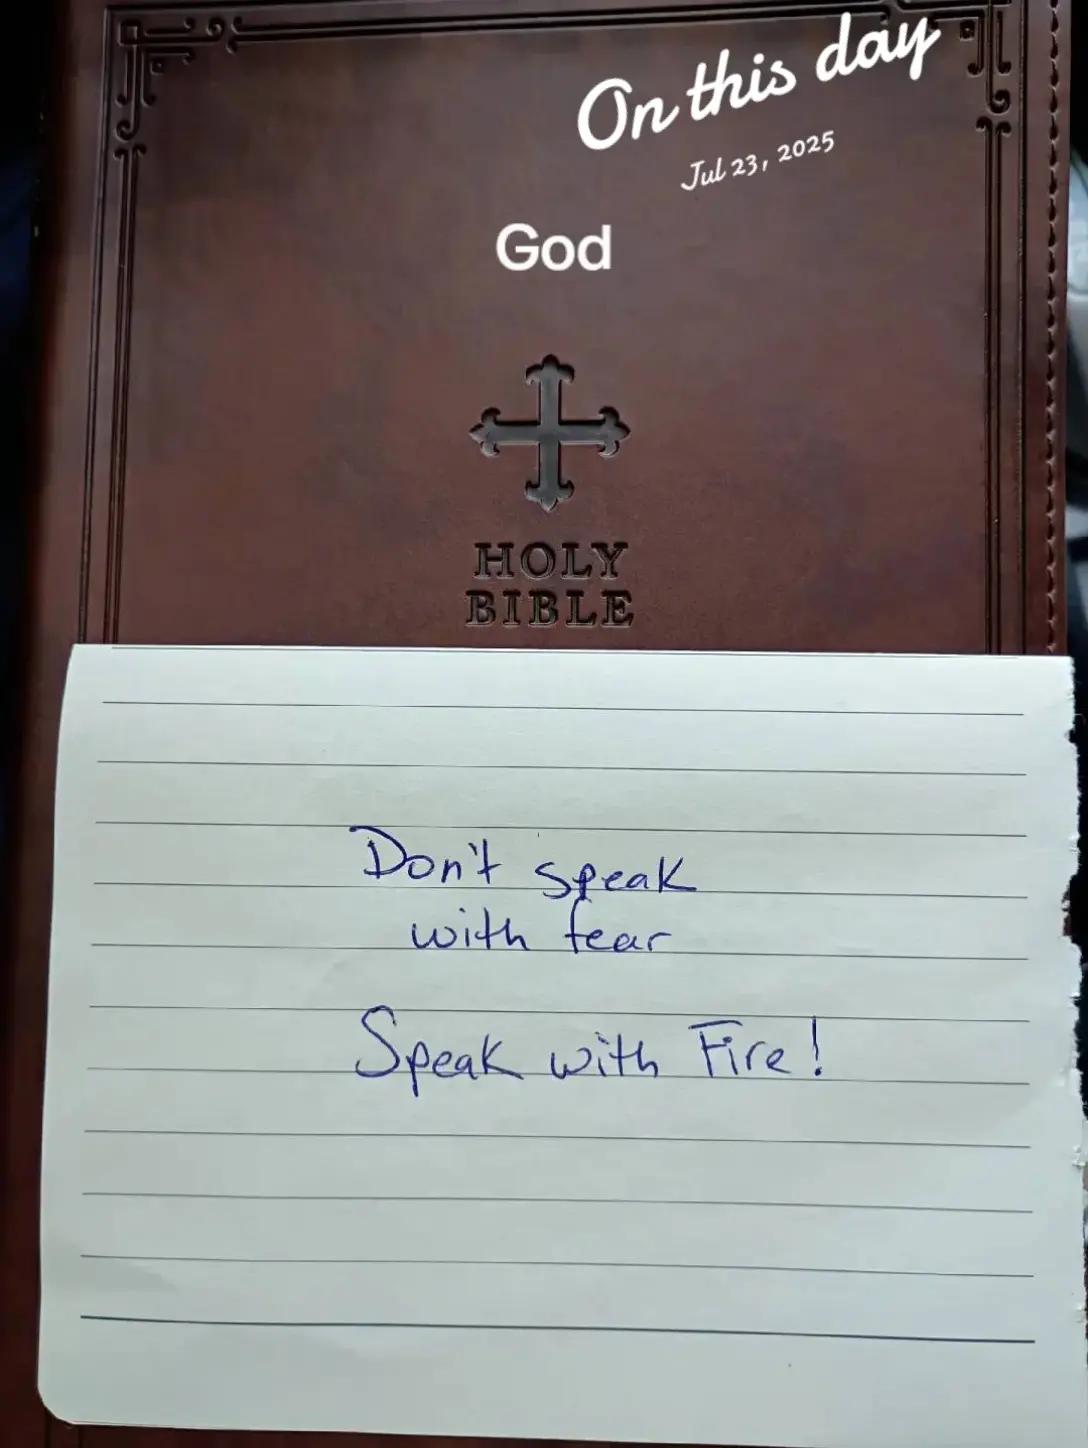 On this day
Jul 23, 2025
God
HOLY
BIBLE
Don't speak
with fear
Speak with Fire!